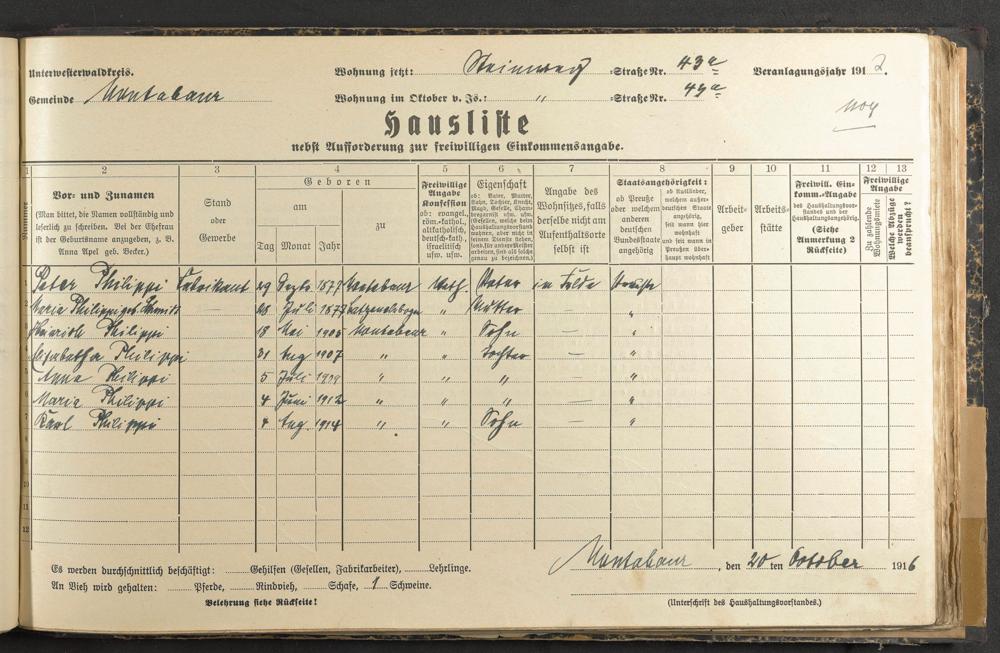 Unterwesterwaldkreis. Wohnung jetzt: Steinweg =Straße Nr. 43a Veranlagungsjahr 1912.
Gemeinde Montabaur Wohnung im Oktober v. Js.: " =Straße Nr. 49a
Hausliste
nebst Aufforderung zur freiwilligen Einkommensangabe.
1 2 3 4 5 6 7 8 9 10 11 12 13
Nummer
Vor- und Zunamen
(Man bittet, die Namen vollständig und
leserlich zu schreiben. Bei der Ehefrau
ist der Geburtsname anzugeben, z. B.
Anna Apel geb. Becker.)
Stand
oder
Gewerbe
Geboren
am
zu
Tag Monat Jahr
Freiwillige
Angabe
Konfession
ob: evangel.,
röm.-kathol.,
altkatholisch,
deutsch-kath.,
israelitisch
usw. usw.
Eigenschaft
Angabe des
Wohnsitzes, falls
derselbe nicht am
Aufenthaltsorte
selbst ist
Staatsangehörigkeit:
ob Preuße
oder welchem
anderen
deutschen
Bundesstaate
angehörig
ob Ausländer,
welchem außer-
deutschen Staate
angehörig,
seit wann hier
wohnhaft
und seit wann in
Preußen über-
haupt wohnhaft
Arbeit-
geber
Arbeits-
stätte
Freiwill. Ein-
komm.-Angabe
des Haushaltungsvor-
standes und der
Haushaltungsangehörig.
(Siehe
Anmerkung 2
Rückseite)
Freiwillige
Angabe
Zu zahlende
Wohnungsmiete
Welche Abzüge
werden
beansprucht?
1 Peter Philippi Fabrikant 29 Septr. 1877 Montabaur Kath. Vater im Felde Preuße
2 Maria Philippi geb. Schmidt — 28 Juli 1877 Katzenelnbogen " Mutter "
3 Heinrich Philippi 18 Mai 1905 Montabaur " Sohn — "
4 Elisabetha Philippi 31 Aug 1907 " " Tochter — "
5 Anna Philippi 5 Juli 1909 " " " — "
6 Maria Philippi 4 Juni 1912 " " " — "
7 Karl Philippi 4 Aug 1914 " " Sohn — "
8
9
10
11
12
Es werden durchschnittlich beschäftigt: Gehilfen (Gesellen, Fabrikarbeiter), Lehrlinge.
Montabaur, den 20 ten October 1916
An Vieh wird gehalten: Pferde, Rindvieh, Schafe, 1 Schweine.
Belehrung siehe Rückseite!
(Unterschrift des Haushaltungsvorstandes.)